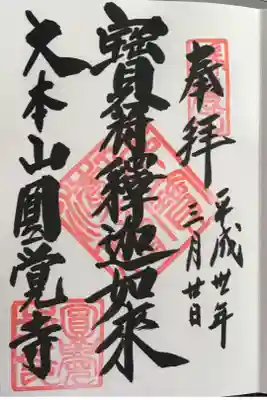 奉拝
平成卅年
三月廿日
寶冠釋迦如來
大本山圓覚寺